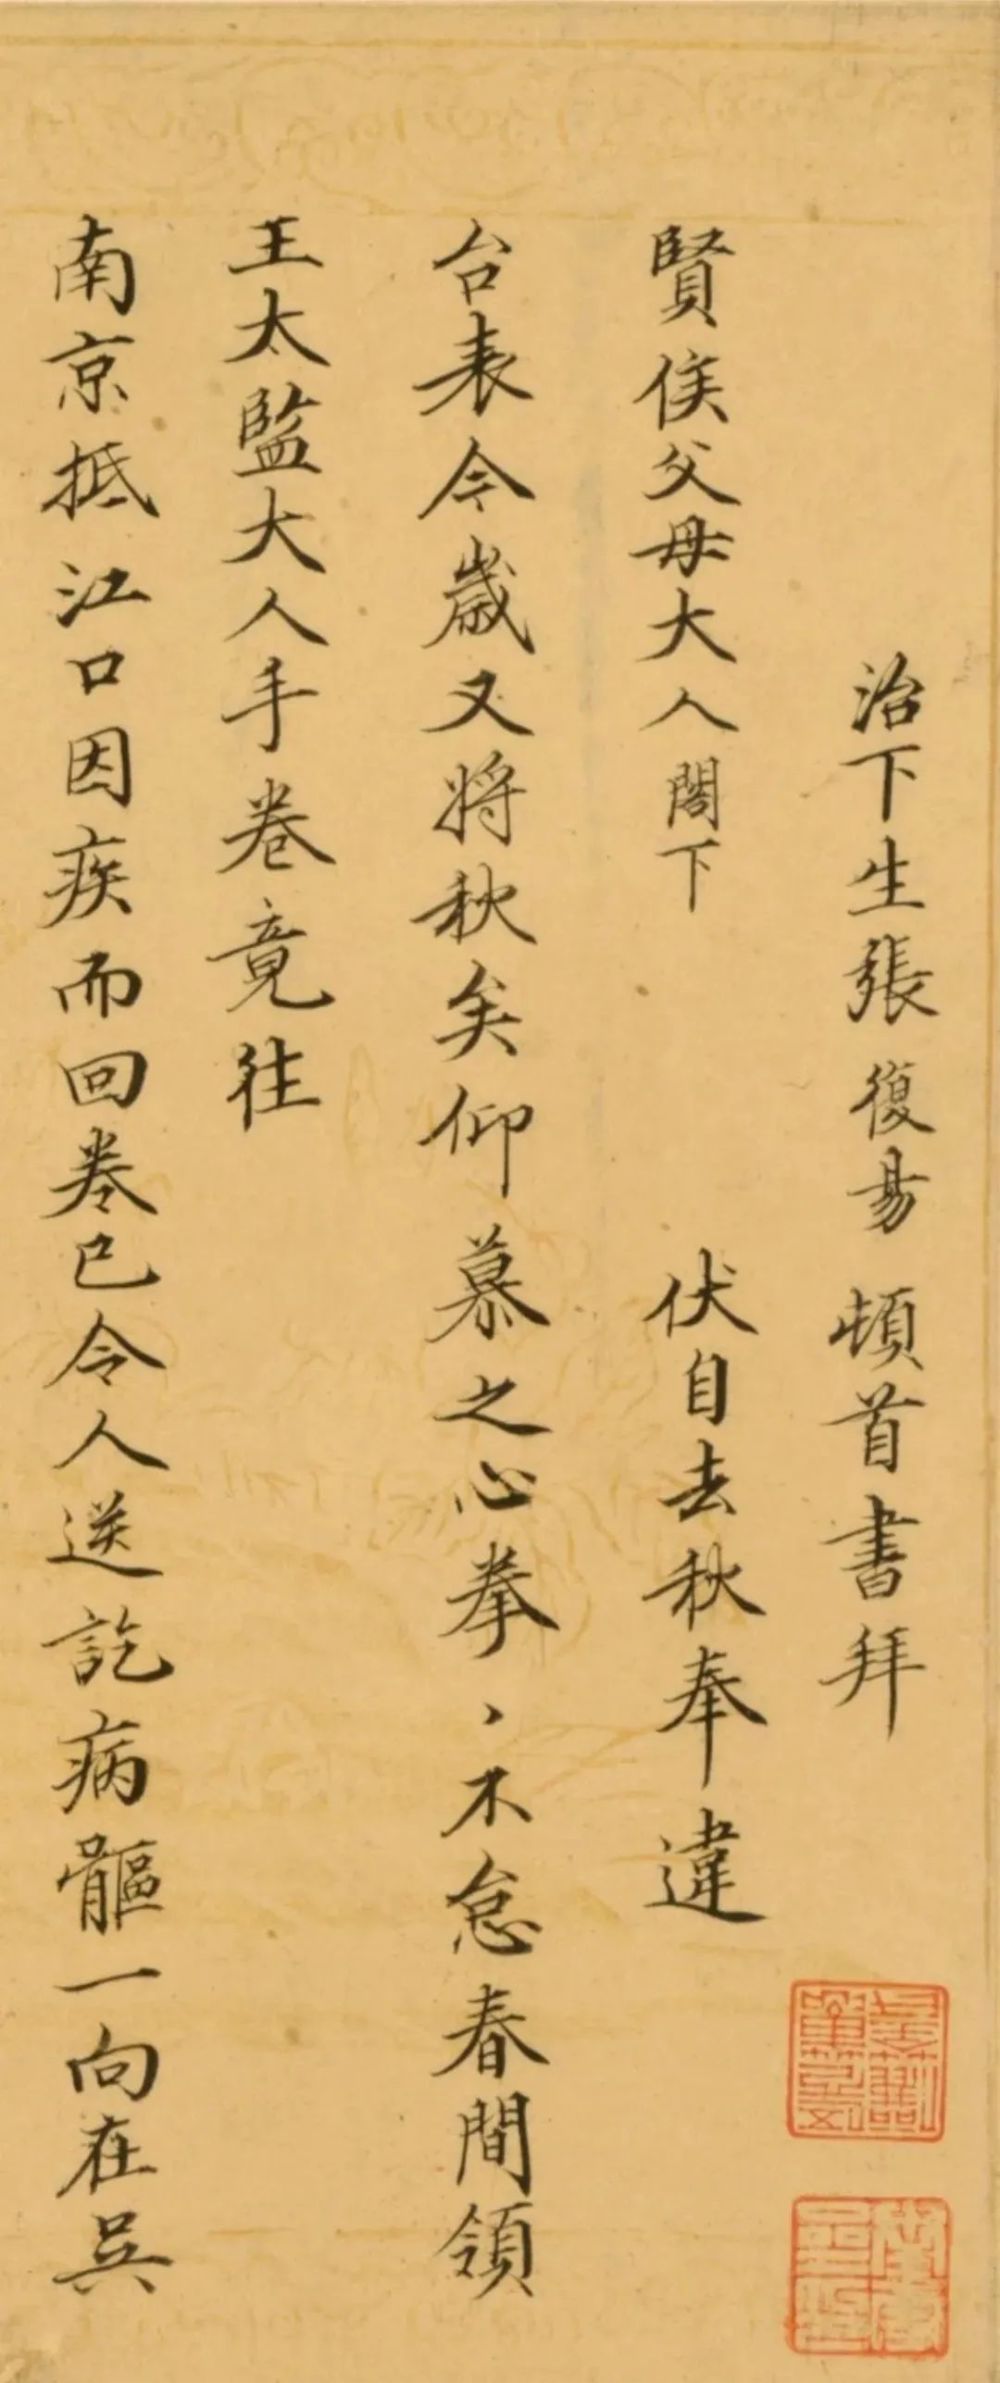 治下生張復昜頓首書拜
賢侯父母大人閣下　伏自去秋奉違
台表今歲又將秋矣仰慕之心拳〻不怠春間領
王太監大人手卷竟往
南京抵江口因疾而回卷已令人送訖病軀一向在吳